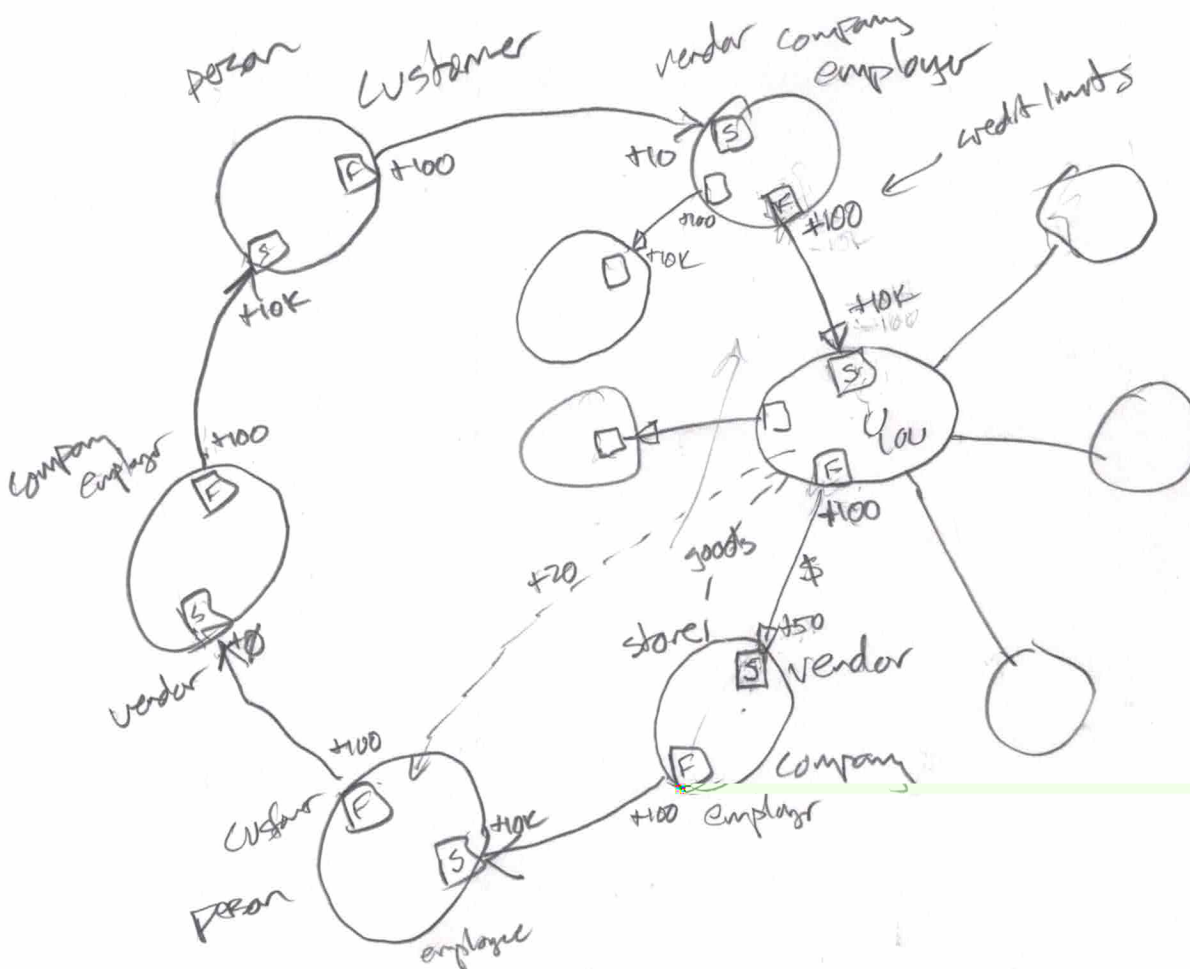 person
customer
vendor company
employer
credit limits
F
+100
S
+10K
S
+10
+100
+10K
F
+100
+10K
-100
S
You
F
+100
company
employr
+100
F
S
+0
vendor
+20
goods
$
store
+50
S
vendor
F
company
+100
employr
+100
customr
F
+10K
S
person
employee